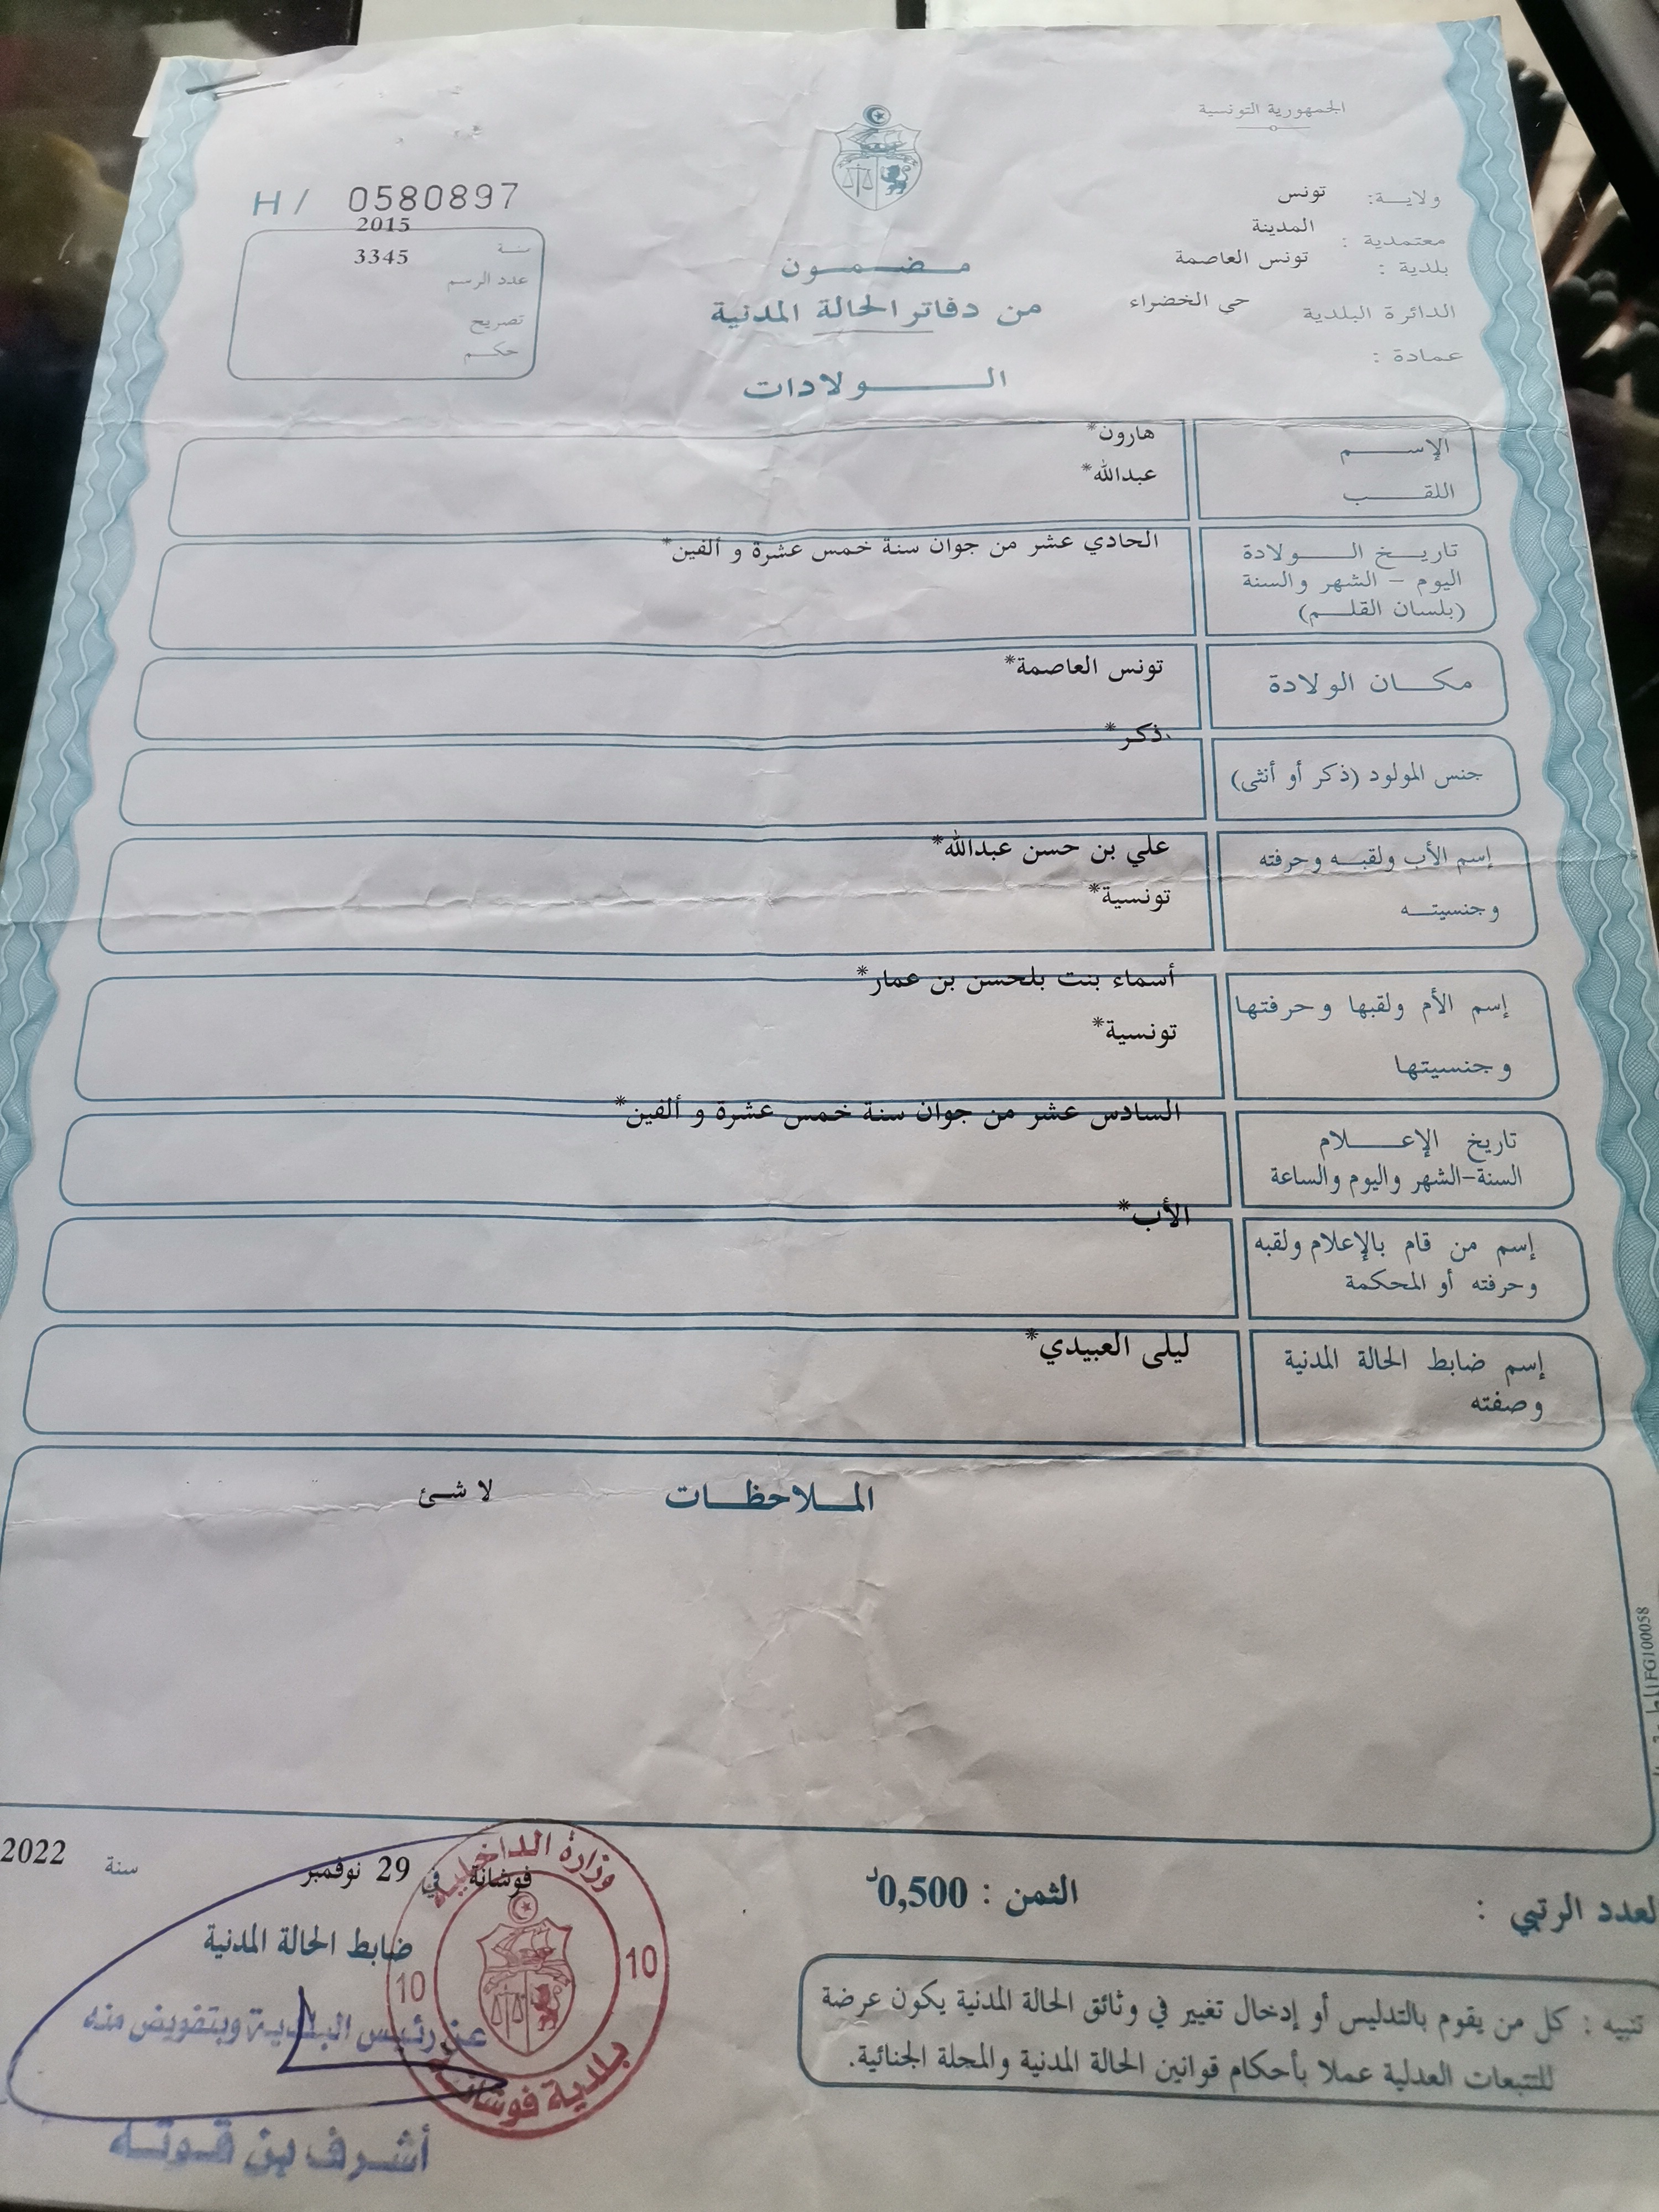 الجمهورية التونسية
ولاية: تونس
معتمدية : المدينة
بلدية : تونس العاصمة
الدائرة البلدية حي الخضراء
عمادة :
مضمون
من دفاتر الحالة المدنية
الولادات
H / 0580897
سنة 2015
عدد الرسم 3345
تصريح
حكم
الإسم هارون*
اللقب عبدالله*
تاريخ الولادة
اليوم - الشهر والسنة
(بلسان القلم)
الحادي عشر من جوان سنة خمس عشرة و ألفين*
مكان الولادة
تونس العاصمة*
جنس المولود (ذكر أو أنثى)
ذكر*
إسم الأب ولقبه وحرفته
وجنسيته
علي بن حسن عبدالله*
تونسية*
إسم الأم ولقبها وحرفتها
وجنسيتها
أسماء بنت بلحسن بن عمار*
تونسية*
تاريخ الإعلام
السنة-الشهر واليوم والساعة
السادس عشر من جوان سنة خمس عشرة و ألفين*
إسم من قام بالإعلام ولقبه
وحرفته أو المحكمة
الأب*
إسم ضابط الحالة المدنية
وصفته
ليلى العبيدي*
الملاحظات
لا شئ
FG100058
لعدد الرتبي :
الثمن : 0,500د
تنبيه : كل من يقوم بالتدليس أو إدخال تغيير في وثائق الحالة المدنية يكون عرضة
للتتبعات العدلية عملا بأحكام قوانين الحالة المدنية والمجلة الجنائية.
فوشانة في 29 نوفمبر سنة 2022
ضابط الحالة المدنية
عن رئيس البلدية وبتفويض منه
أشرف بن قوته
وزارة الداخلية
10 10
بلدية فوشانة